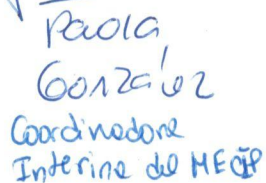 Paola
González
Coordinadora
Interina del MECIP